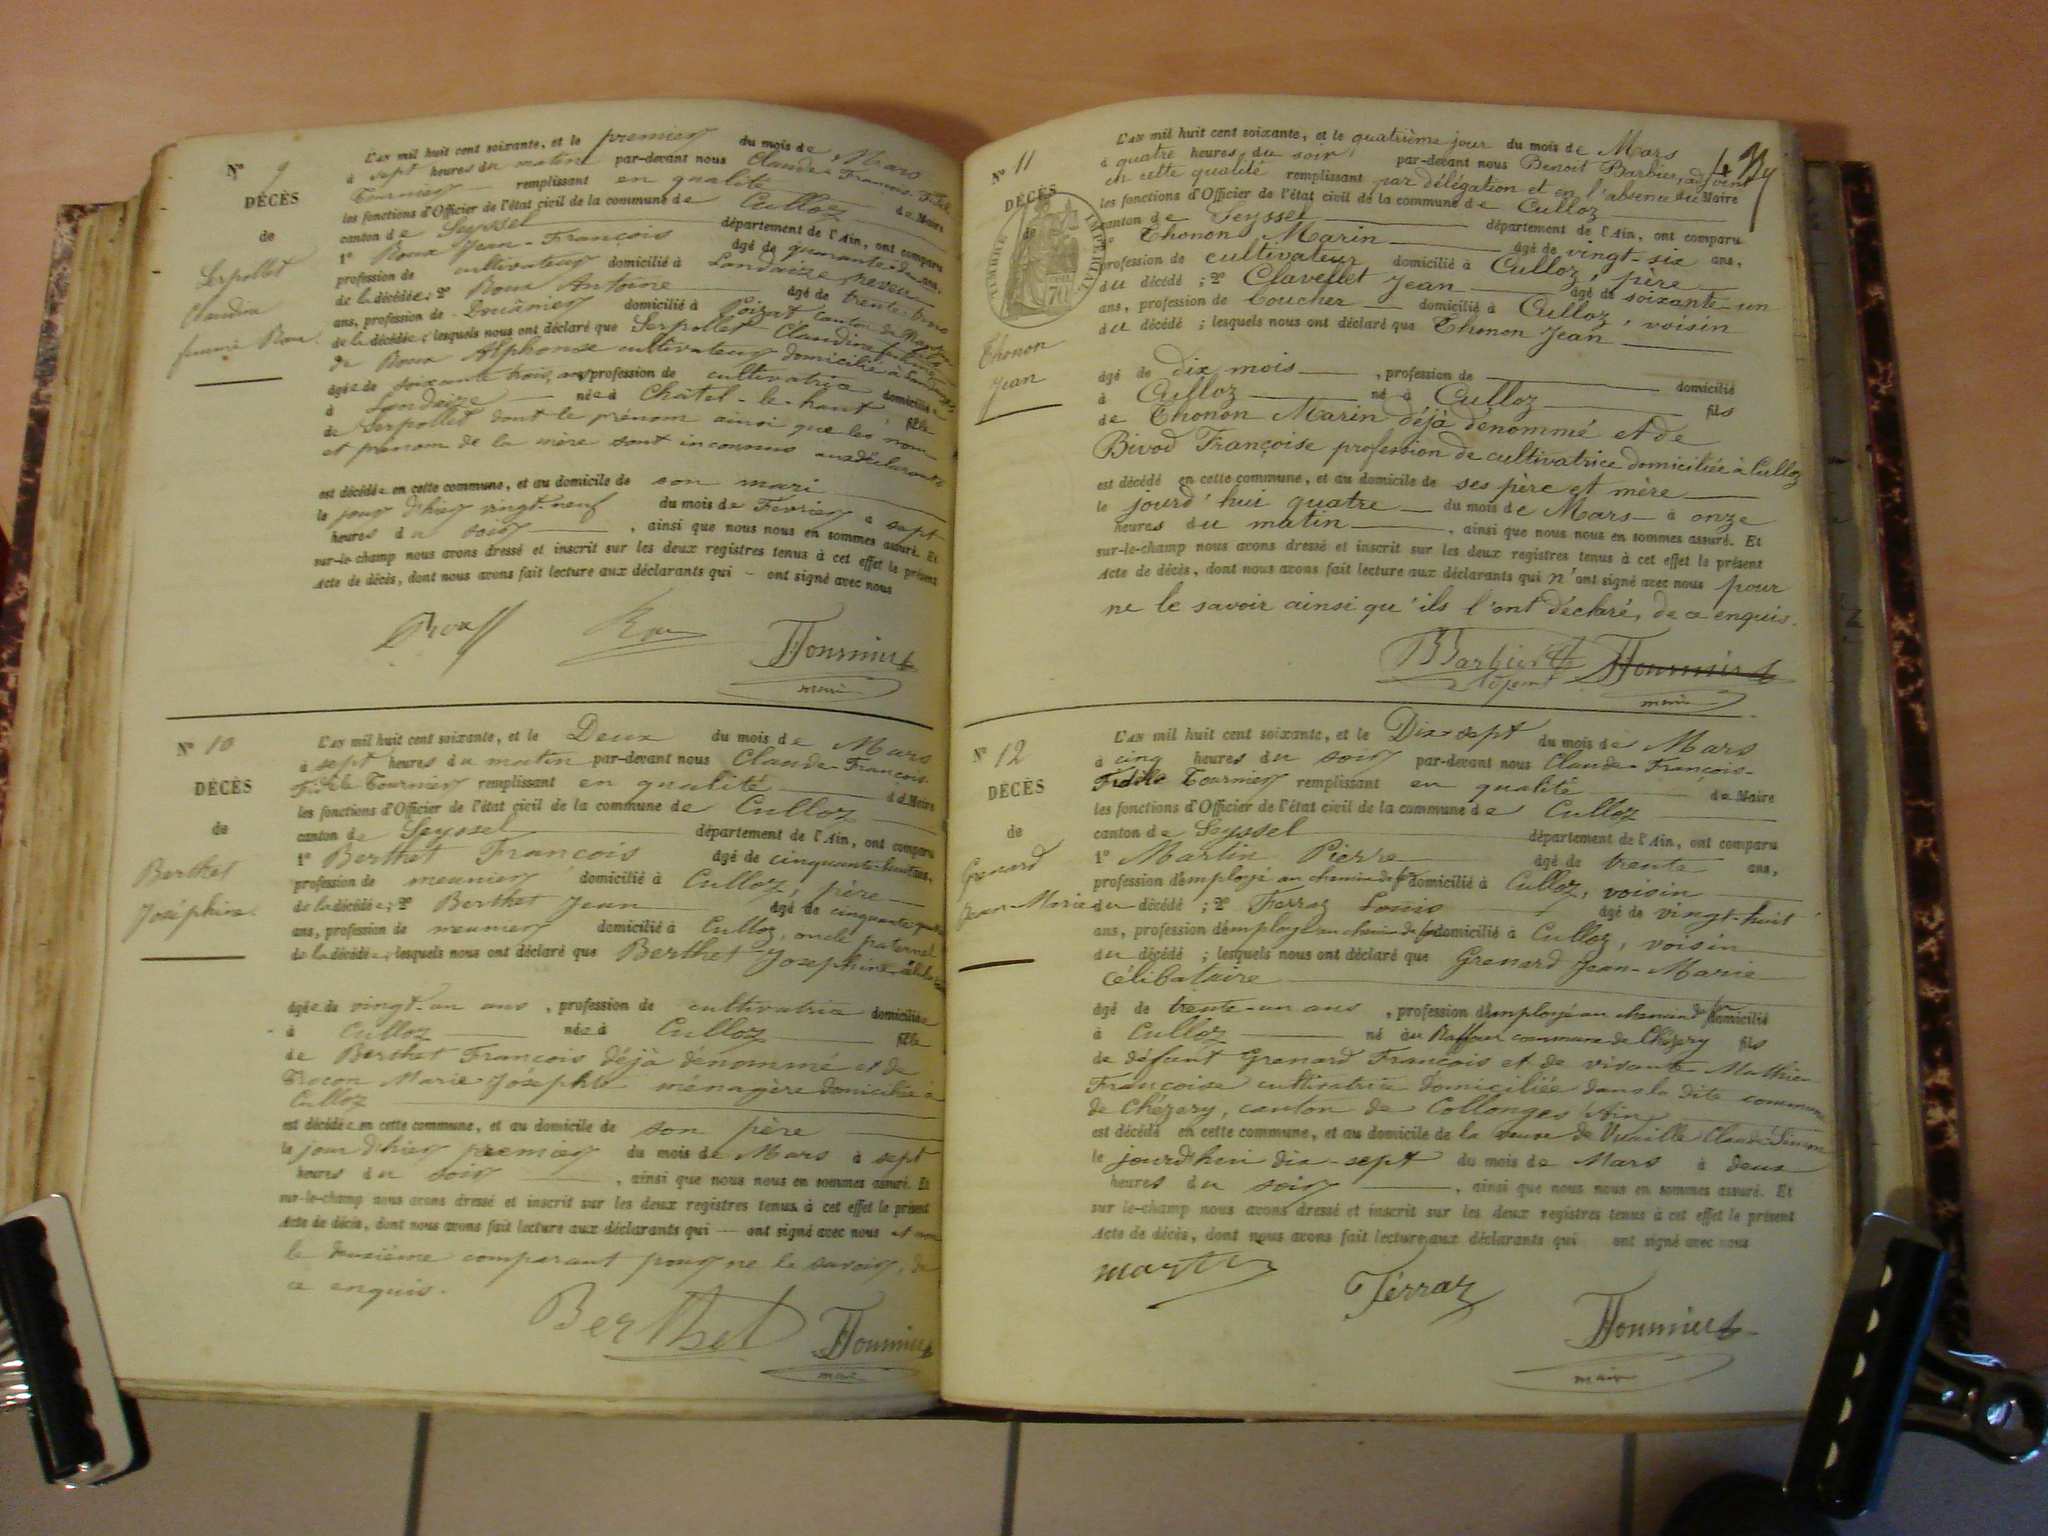 N° 9
DÉCÈS
de
Serpollet
Claudine
femme Roux.
L'AN mil huit cent soixante, et le premier du mois de Mars
à sept heures du matin par-devant nous Claude François Fidèle
Tournier remplissant en qualité de Maire
les fonctions d'Officier de l'état civil de la commune de Culloz
canton de Seyssel département de l'Ain, ont comparu
1° Roux Jean-François âgé de quarante-deux ans,
profession de cultivateur domicilié à Landaize neveu
de la décédée; 2° Roux Antoine âgé de trente-trois
ans, profession de Douanier domicilié à Poizat canton de
de la décédée; lesquels nous ont déclaré que Serpollet Claudine
de Roux Alphonse cultivateur domicilié à Landaize
âgée de soixante trois ans, profession de cultivatrice domiciliée
à Landaize née à Châtel-le-haut fille
de Serpollet dont le prénom ainsi que les nom
et prénom de la mère sont inconnus aux déclarants
est décédée en cette commune, et au domicile de son mari
le jour d'hier vingt-neuf du mois de Février à sept
heures du soir, ainsi que nous nous en sommes assuré. Et
sur-le-champ nous avons dressé et inscrit sur les deux registres tenus à cet effet le présent
Acte de décès, dont nous avons fait lecture aux déclarants qui — ont signé avec nous
Roux Roux Tournier
maire
N° 10
DÉCÈS
de
Berthet
Joséphine.
L'AN mil huit cent soixante, et le Deux du mois de Mars
à sept heures du matin par-devant nous Claude-François
Fidèle Tournier remplissant en qualité de Maire
les fonctions d'Officier de l'état civil de la commune de Culloz
canton de Seyssel département de l'Ain, ont comparu
1° Berthet François âgé de cinquante-huit ans,
profession de meunier domicilié à Culloz, père
de la décédée; 2° Berthet Jean âgé de cinquante quatre
ans, profession de meunier domicilié à Culloz, oncle paternel
de la décédée; lesquels nous ont déclaré que Berthet Joséphine célibataire
âgée de vingt-un ans, profession de cultivatrice domiciliée
à Culloz née à Culloz fille
de Berthet François déjà dénommé et de
Trocon Marie Josephte ménagère domiciliée à
Culloz
est décédée en cette commune, et au domicile de son père
le jour d'hier premier du mois de Mars à sept
heures du soir, ainsi que nous nous en sommes assuré. Et
sur-le-champ nous avons dressé et inscrit sur les deux registres tenus à cet effet le présent
Acte de décès, dont nous avons fait lecture aux déclarants qui — ont signé avec nous et non
le deuxième comparant pour ne le savoir, de
ce enquis.
Berthet Tournier
maire
N° 11
DÉCÈS
de
TIMBRE IMPÉRIAL
Thonon
Jean
L'AN mil huit cent soixante, et le quatrième jour du mois de Mars
à quatre heures du soir, par-devant nous Benoit Barbier, adjoint
en cette qualité remplissant par délégation et en l'absence du Maire
les fonctions d'Officier de l'état civil de la commune de Culloz
canton de Seyssel département de l'Ain, ont comparu
1° Thonon Marin âgé de vingt-six ans,
profession de cultivateur domicilié à Culloz, père
du décédé; 2° Clavellet Jean âgé de soixante-un
ans, profession de Boucher domicilié à Culloz, voisin
du décédé; lesquels nous ont déclaré que Thonon Jean
âgé de dix mois, profession de domicilié
à Culloz né à Culloz fils
de Thonon Marin déjà dénommé et de
Bivod Françoise profession de cultivatrice domiciliée à Culloz
est décédé en cette commune, et au domicile de ses père et mère
le jourd'hui quatre du mois de Mars à onze
heures du matin, ainsi que nous nous en sommes assuré. Et
sur-le-champ nous avons dressé et inscrit sur les deux registres tenus à cet effet le présent
Acte de décès, dont nous avons fait lecture aux déclarants qui n'ont signé avec nous pour
ne le savoir ainsi qu'ils l'ont déclaré, de ce enquis.
Barbier Bt Tournier
adjoint maire
N° 12
DÉCÈS
de
Grenard
Jean-Marie
L'AN mil huit cent soixante, et le Dix-sept du mois de Mars
à cinq heures du soir par-devant nous Claude-François-
Fidèle Tournier remplissant en qualité de Maire
les fonctions d'Officier de l'état civil de la commune de Culloz
canton de Seyssel département de l'Ain, ont comparu
1° Martin Pierre âgé de trente ans,
profession d'employé au chemin de fer domicilié à Culloz, voisin
du décédé; 2° Ferraz Louis âgé de vingt-huit
ans, profession d'employé au chemin de fer domicilié à Culloz, voisin
du décédé; lesquels nous ont déclaré que Grenard Jean-Marie
célibataire
âgé de trente-un ans, profession d'employé au chemin de fer domicilié
à Culloz né au Raffour commune de Chézery fils
de défunt Grenard François et de vivante Mathieu
Françoise cultivatrice domiciliée dans la dite commune
de Chézery, canton de Collonges (Ain)
est décédé en cette commune, et au domicile de la veuve de Vuaille Claude Simon
le jourd'hui dix-sept du mois de Mars à deux
heures du soir, ainsi que nous nous en sommes assuré. Et
sur-le-champ nous avons dressé et inscrit sur les deux registres tenus à cet effet le présent
Acte de décès, dont nous avons fait lecture aux déclarants qui ont signé avec nous
Martin Férraz Tournier
maire